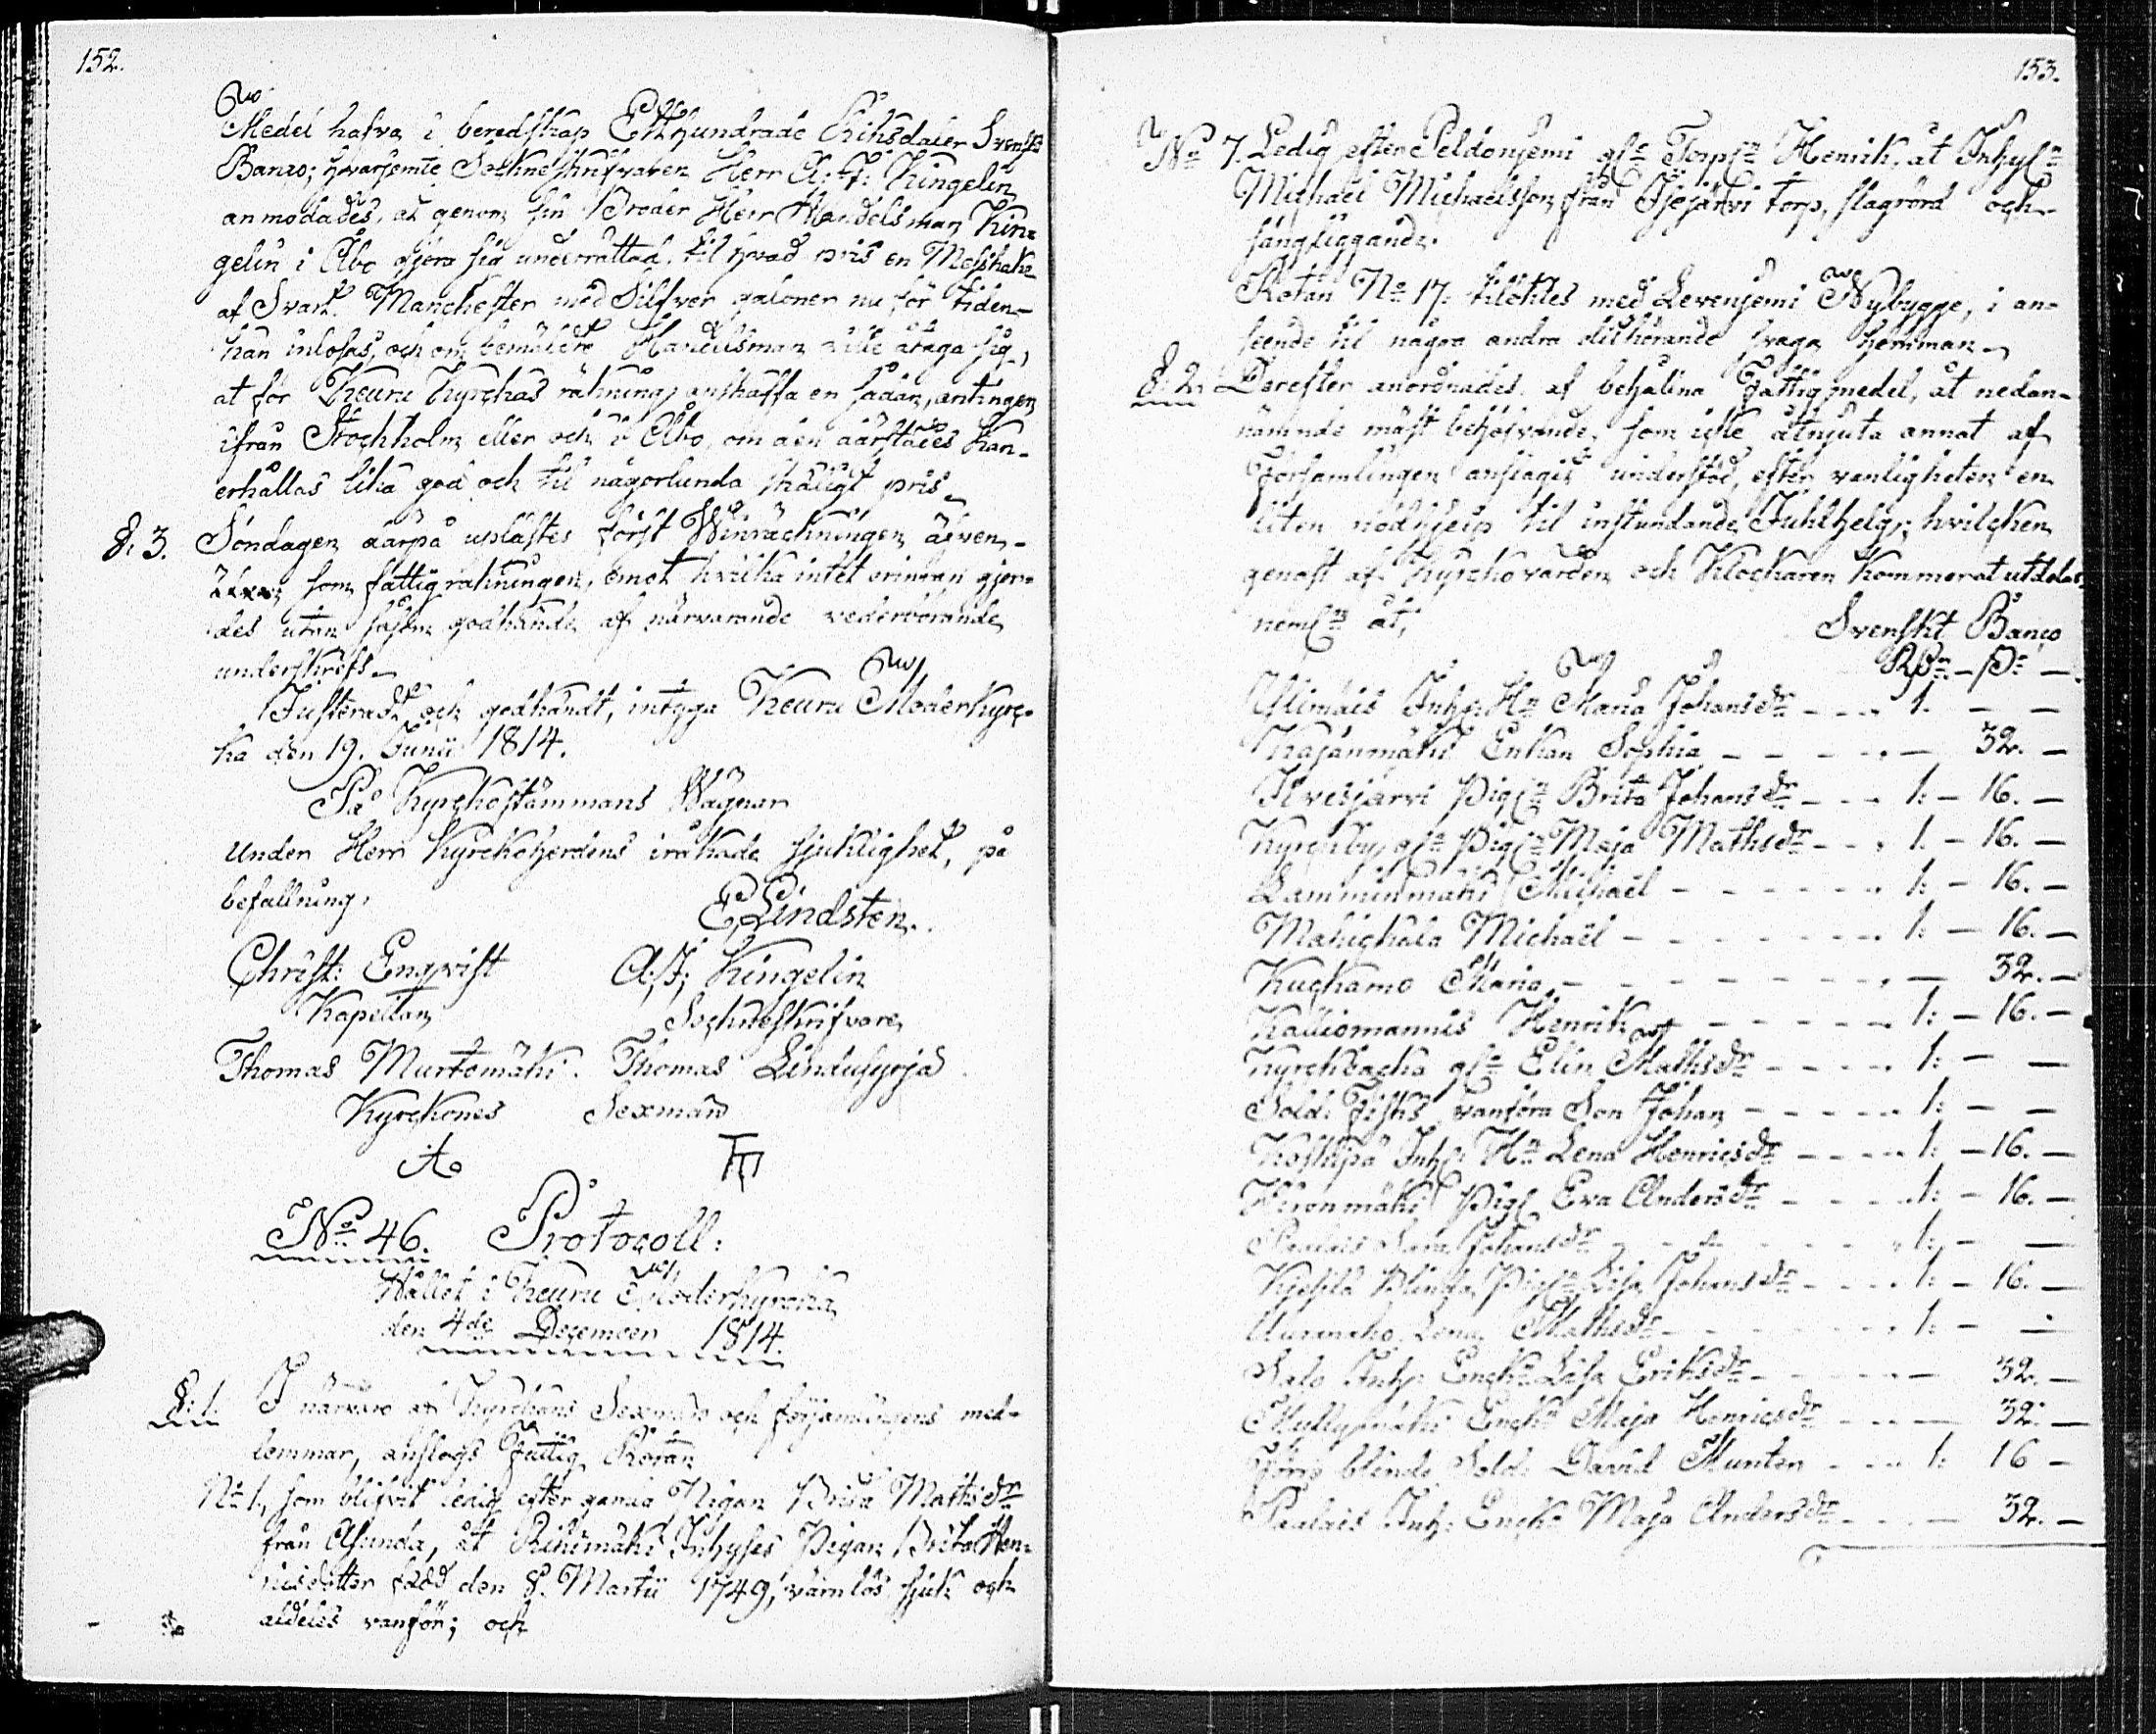 152.
Medel hafva i beredskap Ett Hundrade Riksdaler Svenskt
Banco; hvarjemte Sockneskrifvaren Herr A: J: Kingelin
anmodades, at genom sin Broder Herr Handelsman Kin=
gelin i Åbo gjöra sig underrättad, til hvad pris en Messhake
af Svart Manchester med Silfver galoner nu för tiden
kan inlösas, och om bemälte Handelsman ville åtaga sig,
at för Keuru Kyrckas räkning anskaffa en sådan, antingen
ifrån Stockholm eller och i Åbo, om den därstädes kan
erhållas lika god och til någorlunda skäligt pris.
§. 3. Söndagen därpå uplästes först Winräckningen äfven-
som fattigräkningen, emot hvilka intet erinran gjor-
des utan såsom godkände af närvarande vederbörande
underskrefs.
Justeradt och godkändt, intyga Keuru Moderkyrc-
ka den 19. Junii 1814.
På Kyrckostämmans Wägnar
Under Herr Kyrckoherdens iråkade sjuklighet, på
befallning,
E Lindsten.
Christ: Enqvist A: J: Kingelin
Kapellan Sockneskrifvare
Thomas Murtomäki. Thomas Lindusyrjä.
Kyrckones Sexmän
No 46. Protocoll:
Hållet i Keuru Moderkyrcka
den 4de December 1814.
§. 1. I närvaro af Kyrckans Sexmän och församlingens med-
lemmar, anslogs Fattig Rotan
No 1., som blifvit ledig efter gamla Pigan Brita Mathsdr
från Asunda, åt Riihimäki Inhyses Pigan Brita Hen-
ricsdotter född den 8. Martii 1749, värnlös sjuk och
aldeles vanför; och
153.
No 7. Ledig efter Peldoniemi gle Torpn Henrik, åt Inhysn
Michael Michaelsson från torp, slagrörd och
sängliggande.
Rotan No 17. tiläktes med Levenjemi Nybygge, i an-
seende til några andra dithörande svaga hemman.
§. 2. Derefter anordnades af behålna Fattigmedel, åt nedan-
nämnde mäst behöfvande, som icke åtnjuta annat af
Församlingen anslagit understöd, efter vanligheten en
liten nödhjelp til instundande Juhlhelg; hvilcken
genast af Kyrckovärden och Klockaren kommer at utdelas,
neml: åt,
Svenskt Banco
Rdr - s -
Inh: Hn Maria Johansdr - - - 1. - -
Kajanmäki Enkan Sophia - - - - - 32. -
Ilvesjärvi Pign Brita Johansdr - - - 1: - 16. -
Kyrckby gl Pign Maja Mathsdr - - - 1. - 16. -
Lamminmäki Michaël - - - - - 1: - 16. -
Michaël - - - - - 1: - 16. -
Kuckamo Maria - - - - - 32. -
Kalliomannis Henrik - - - - - 1: - 16. -
Kyrckbacka gl Elin Mathsdr - - - - 1: - -
Sold: Fisks vanföra Son Johan - - - - 1: - -
Inh: Hn Lena Henricsdr - - - - 1: - 16. -
Pig Eva Andersdr - - - - 1: - 16. -
Sara Johansdr - - - - 1: - -
blinda Pign Lisa Johansdr - - - - 1: - 16. -
Lena Mathsdr - - - - 1: - -
Salo Inh: Enckn Lisa Eriksdr - - - - 32. -
Enckn Maja Henricsdr - - - 32. -
blinde Sold: David Munter - - - 1: 16 -
Inh: Enckn Maja Andersdr - - - 32. -